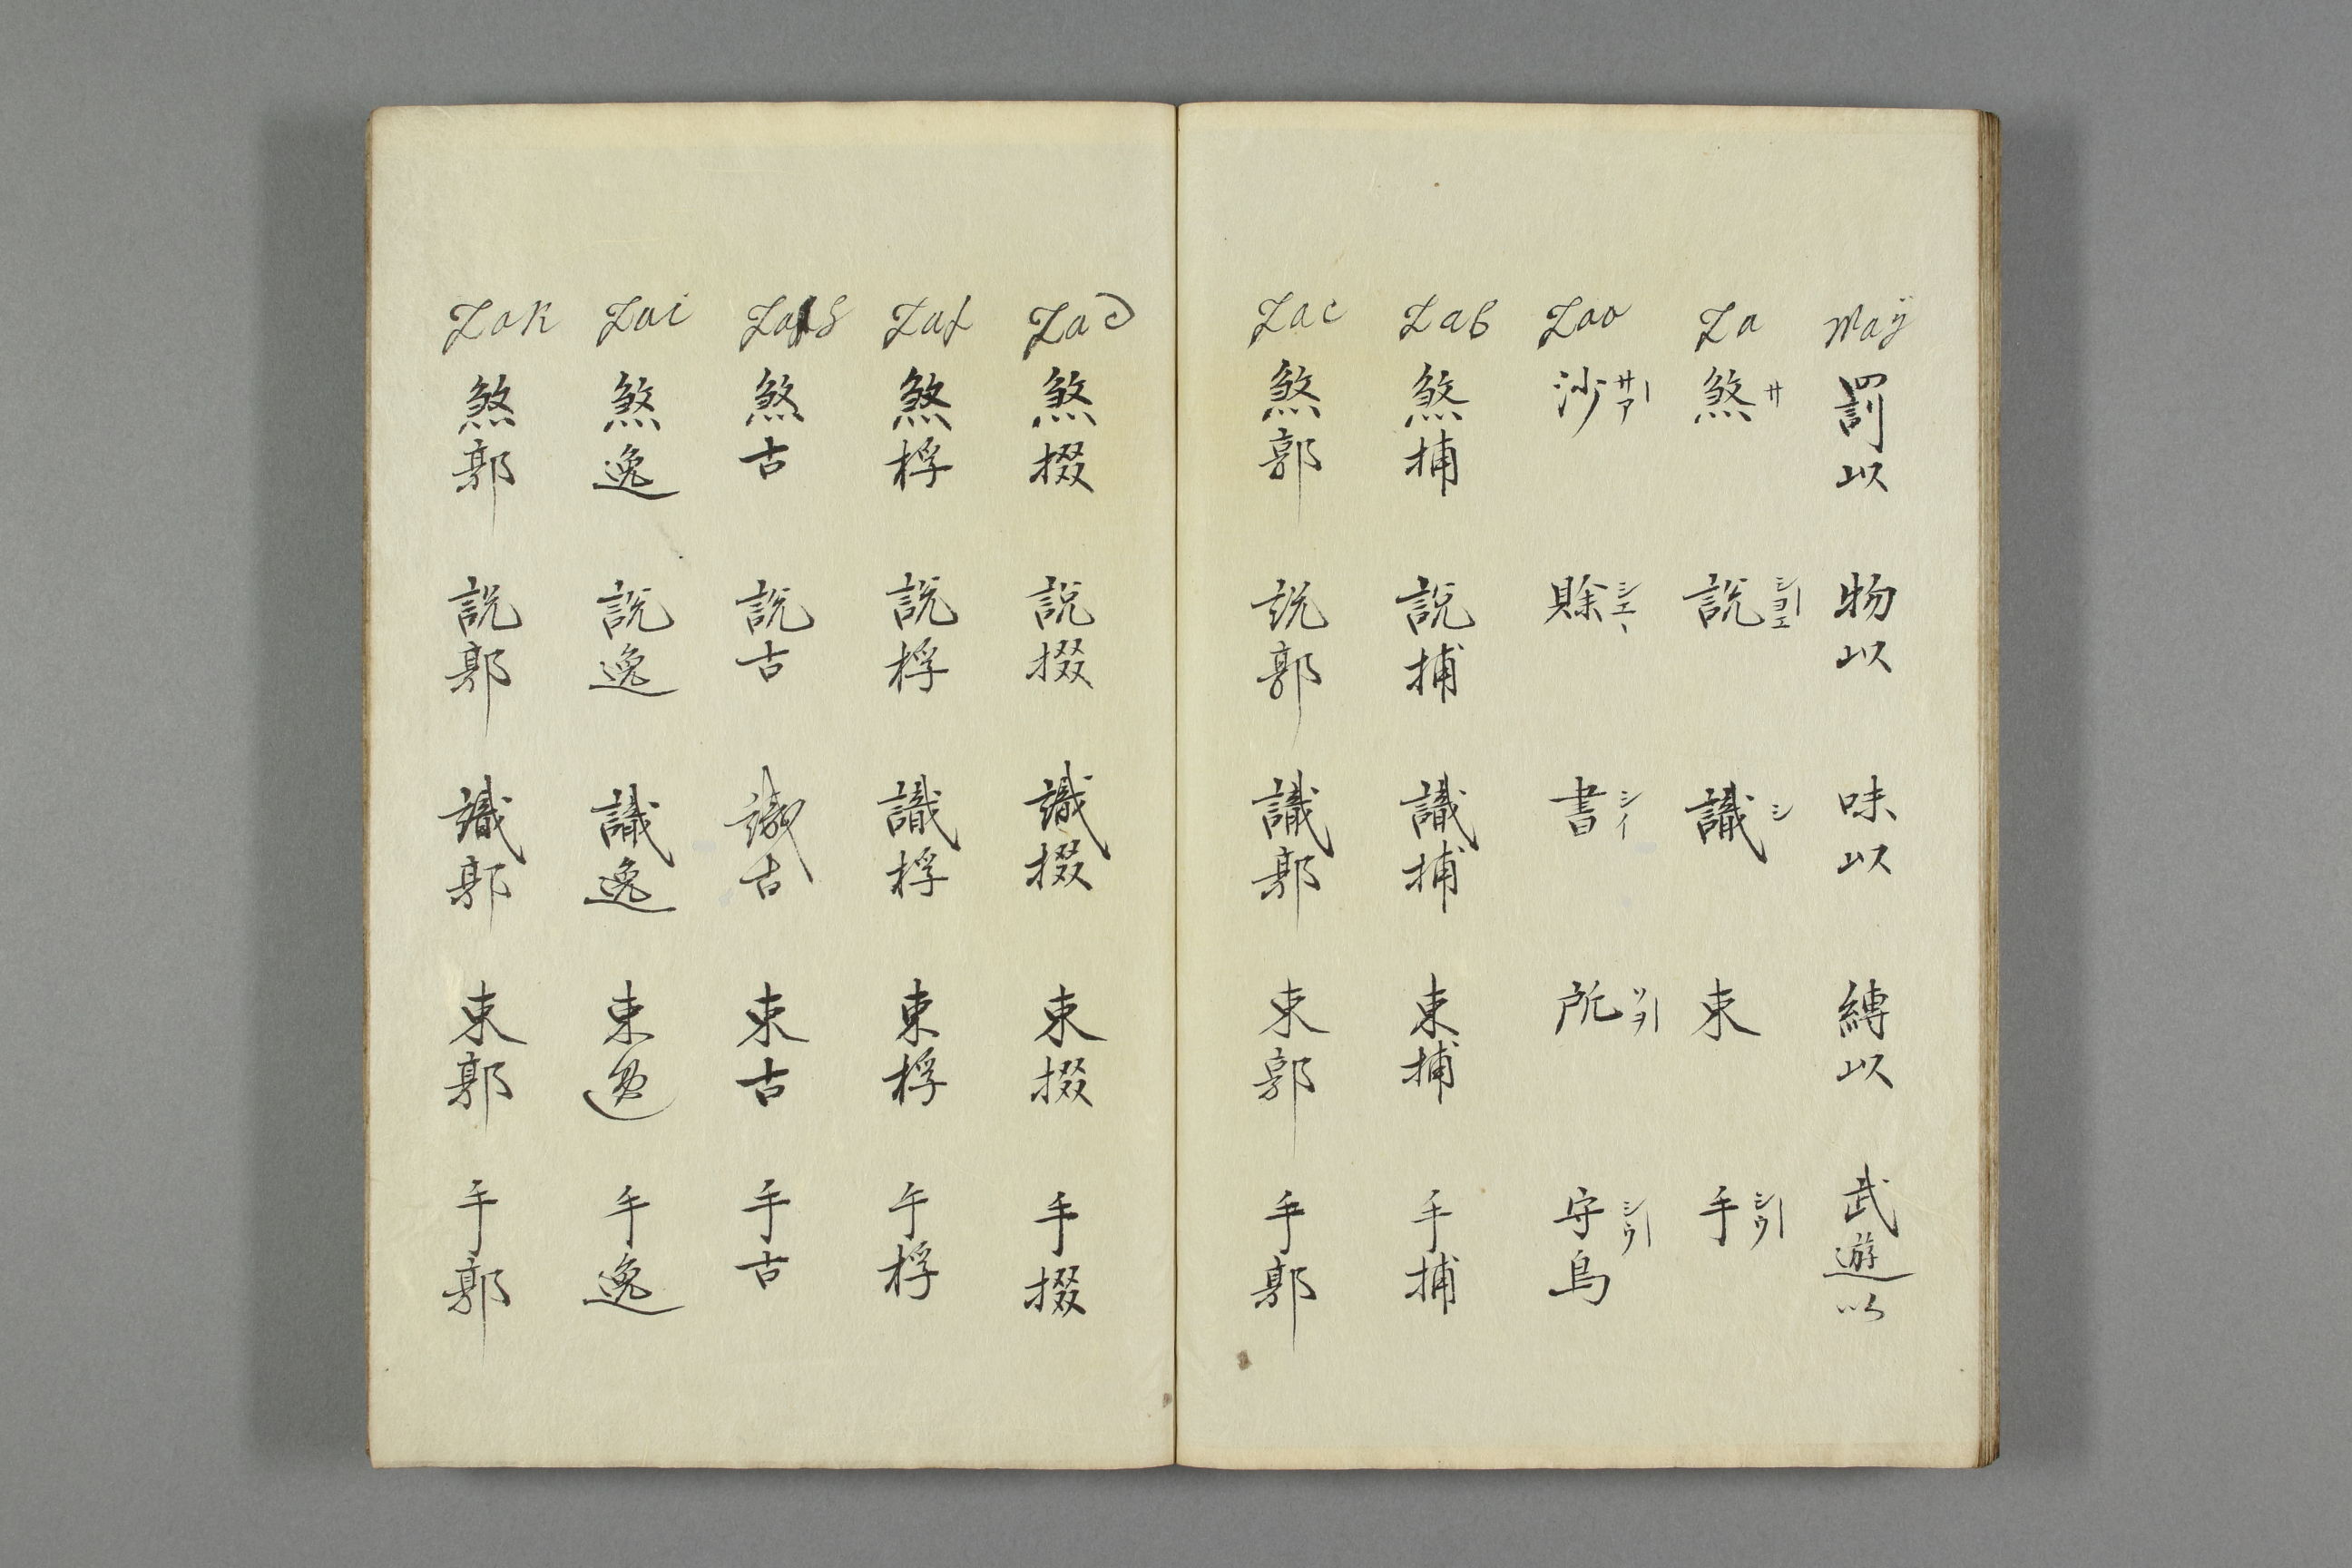 Waÿ 罰以 物以 味以 縛以 武遊以
Za 煞サ 説ショーエ 識シ 束 手シーウ
Zao 沙サーア 賒シエ、 書シイ 所ソーヲ 守烏シーウ
Zab 煞捕 説捕 識捕 束捕 手捕
Zac 煞郭 説郭 識郭 束郭 手郭
Zad 煞掇 説掇 識掇 束掇 手掇
Zaf 煞桴 説桴 識桴 束桴 手桴
煞古 説古 識古 束古 手古
Zai 煞逸 説逸 識逸 束逸 手逸
Zak 煞郭 説郭 識郭 束郭 手郭